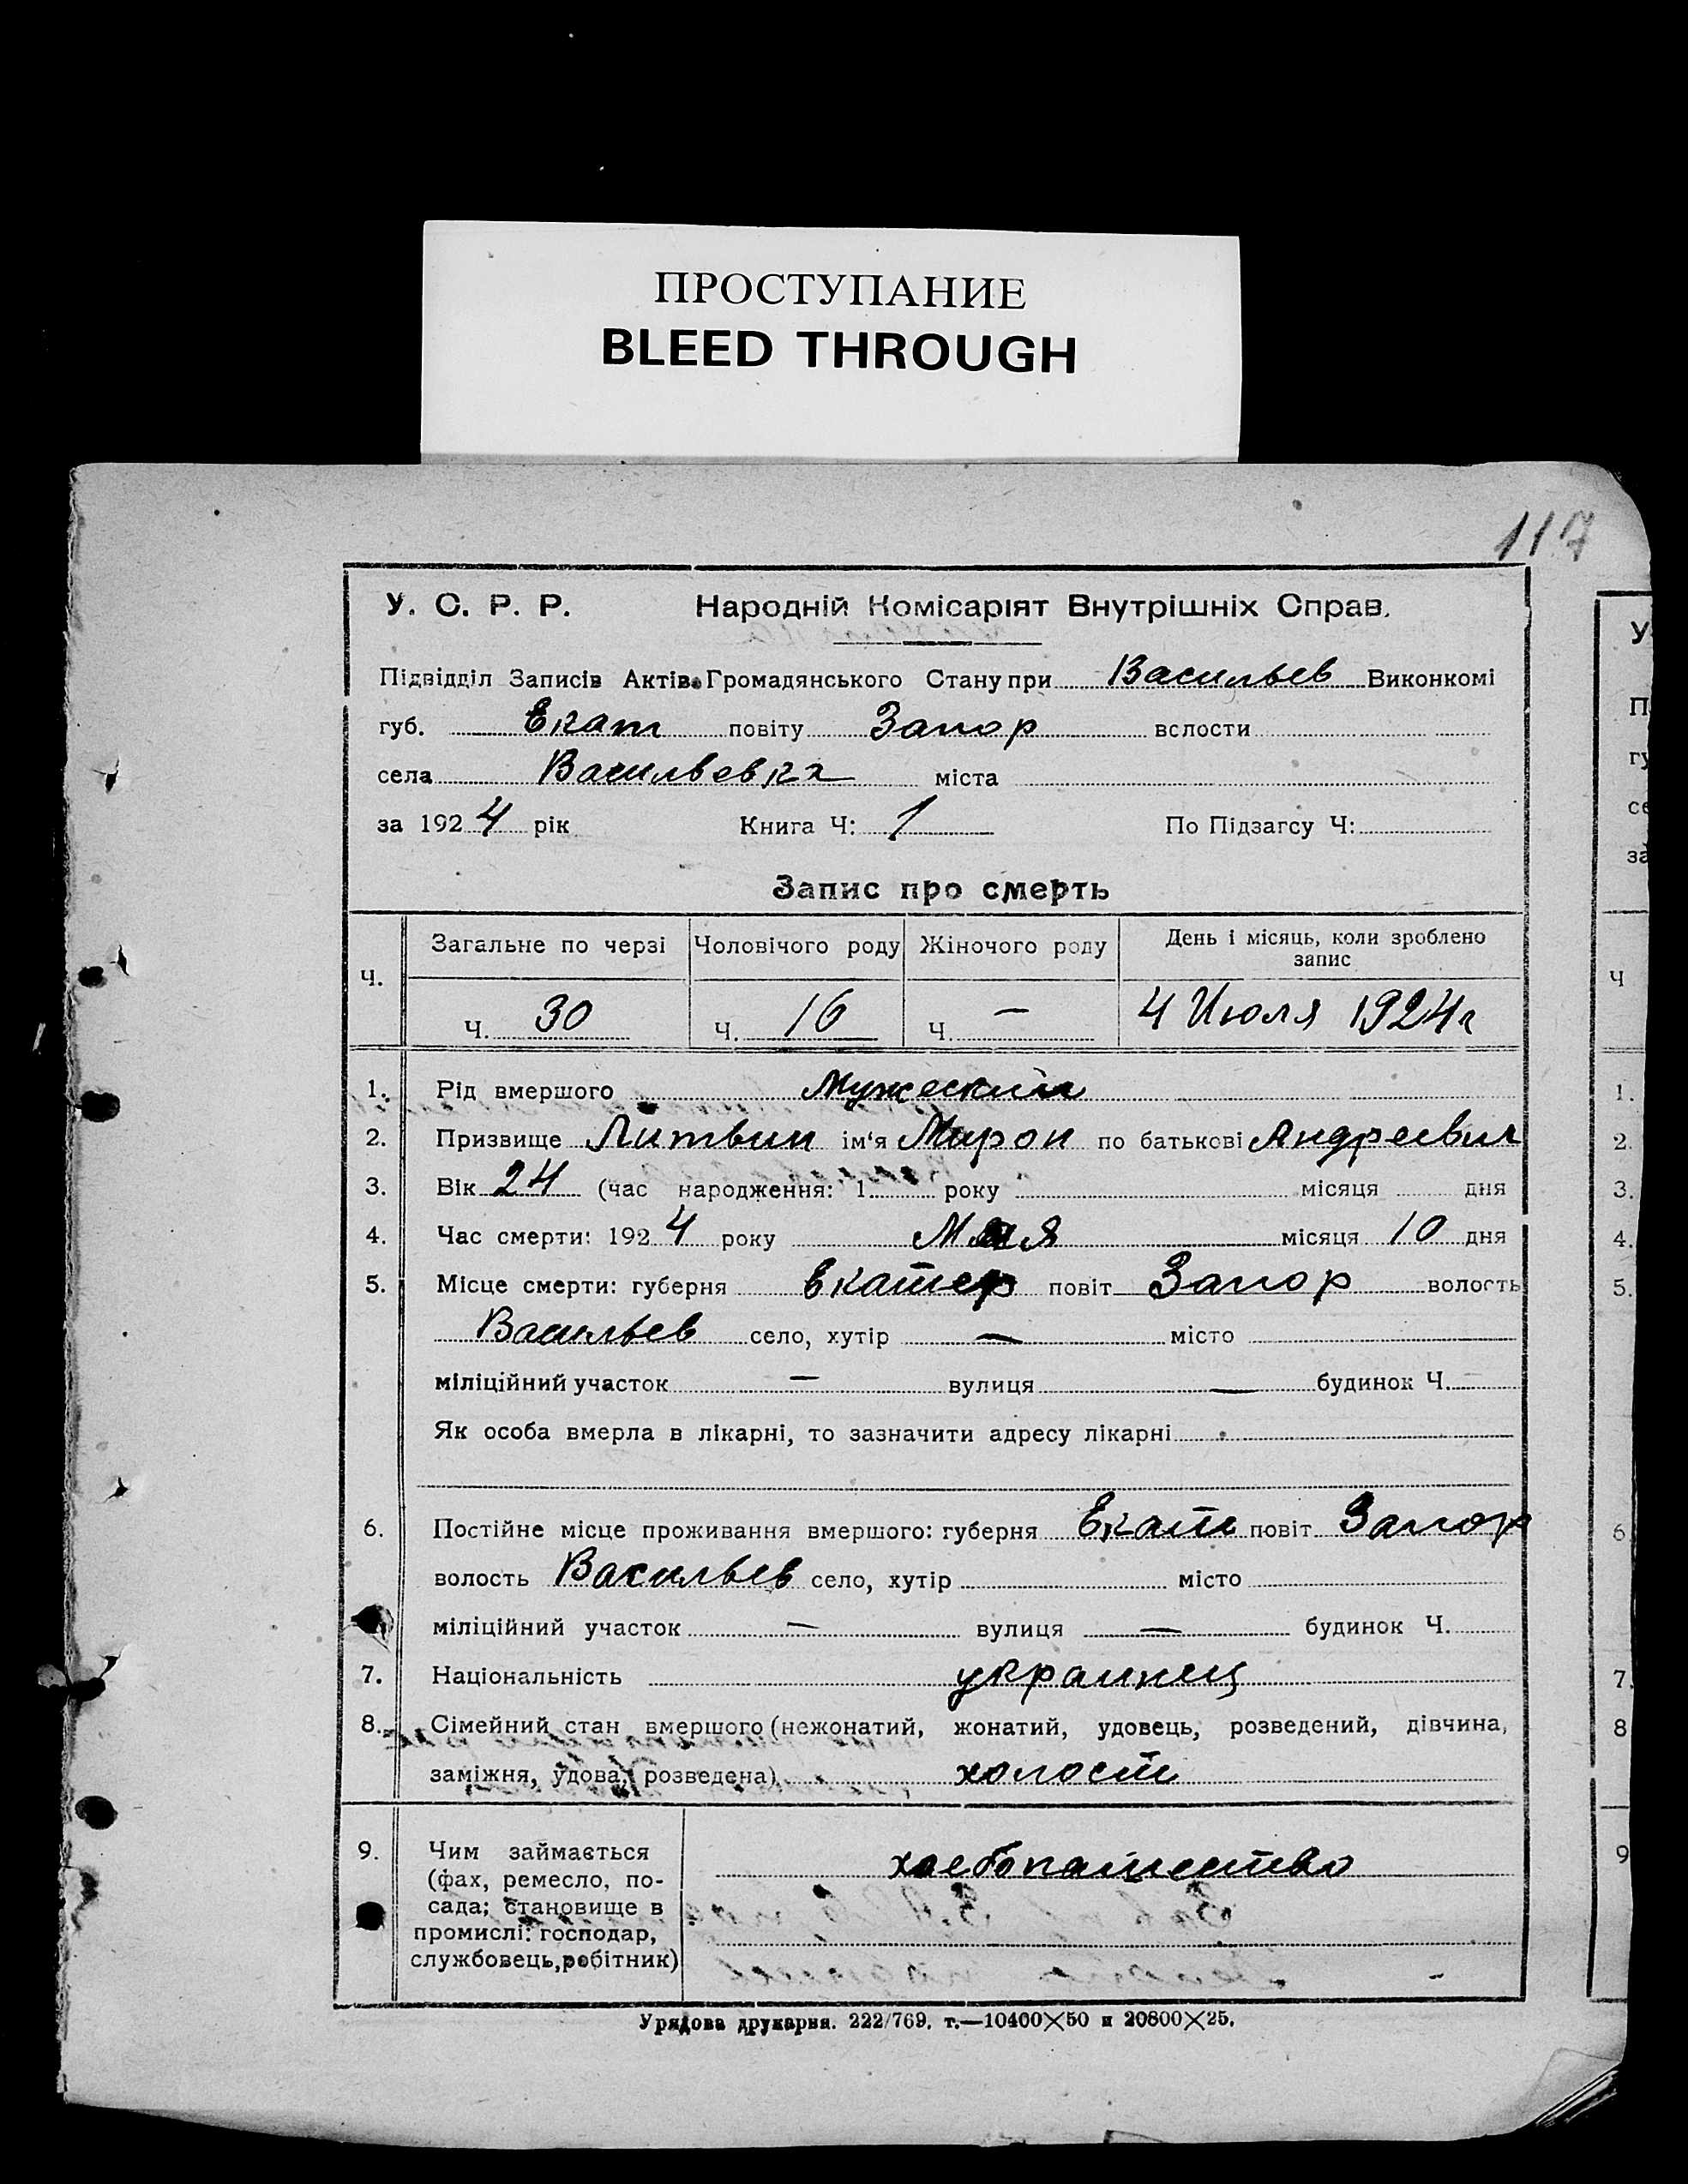 ПРОСТУПАНИЕ
BLEED THROUGH
117
У. С. Р. Р. Народній Комісаріят Внутрішніх Справ.
Підвідділ Записів Актів Громадянського Стану при Васильев Виконкомі
губ. Екат повіту Запор волости
села Васильевка міста
за 1924 рік Книга Ч: 1 По Підзагсу Ч:
Запис про смерть
Ч. Загальне по черзі Чоловічого роду Жіночого роду День і місяць, коли зроблено запис
Ч. 30 Ч. 16 Ч. — 4 Июля 1924 г
1. Рід вмершого Мужеский
2. Призвище Литвин ім'я Мирон по батькові Андреевич
3. Вік 24 (час народження: 1 року місяця дня
4. Час смерти: 1924 року Мая місяця 10 дня
5. Місце смерти: губерня Екатер повіт Запор волость
Васильев село, хутір — місто
міліційний участок — вулиця — будинок Ч.
Як особа вмерла в лікарні, то зазначити адресу лікарні
6. Постійне місце проживання вмершого: губерня Екат повіт Запор
волость Васильев село, хутір місто
міліційний участок — вулиця — будинок Ч.
7. Національність украинец
8. Сімейний стан вмершого (нежонатий, жонатий, удовець, розведений, дівчина,
заміжня, удова, розведена) холост
9. Чим займається
(фах, ремесло, по-
сада; становище в
промислі: господар,
службовець, робітник)
хлебопашество
Урядова друкарня. 222/769. т.—10400×50 и 20800×25.
У
П
гу
се
за
Ч
1.
2.
3.
4.
5.
6
7.
8
9